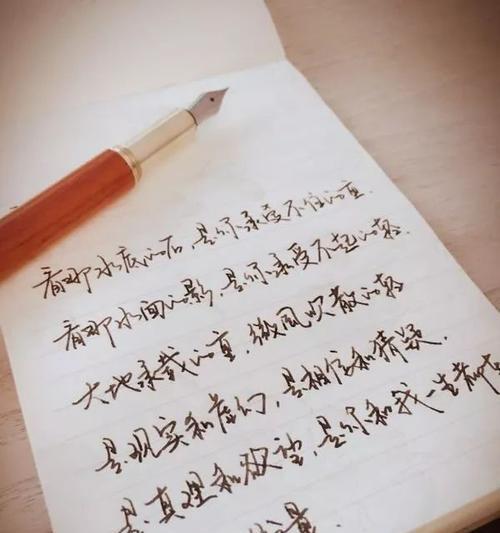 看那水底的石，是你承受不住的重.
看那水面的影，是你承受不起的轻.
大地承载的重，微风吹散的轻
是现实和虚幻，是相信和猜疑.
是真理和欲望，是你和我一生都
的量.